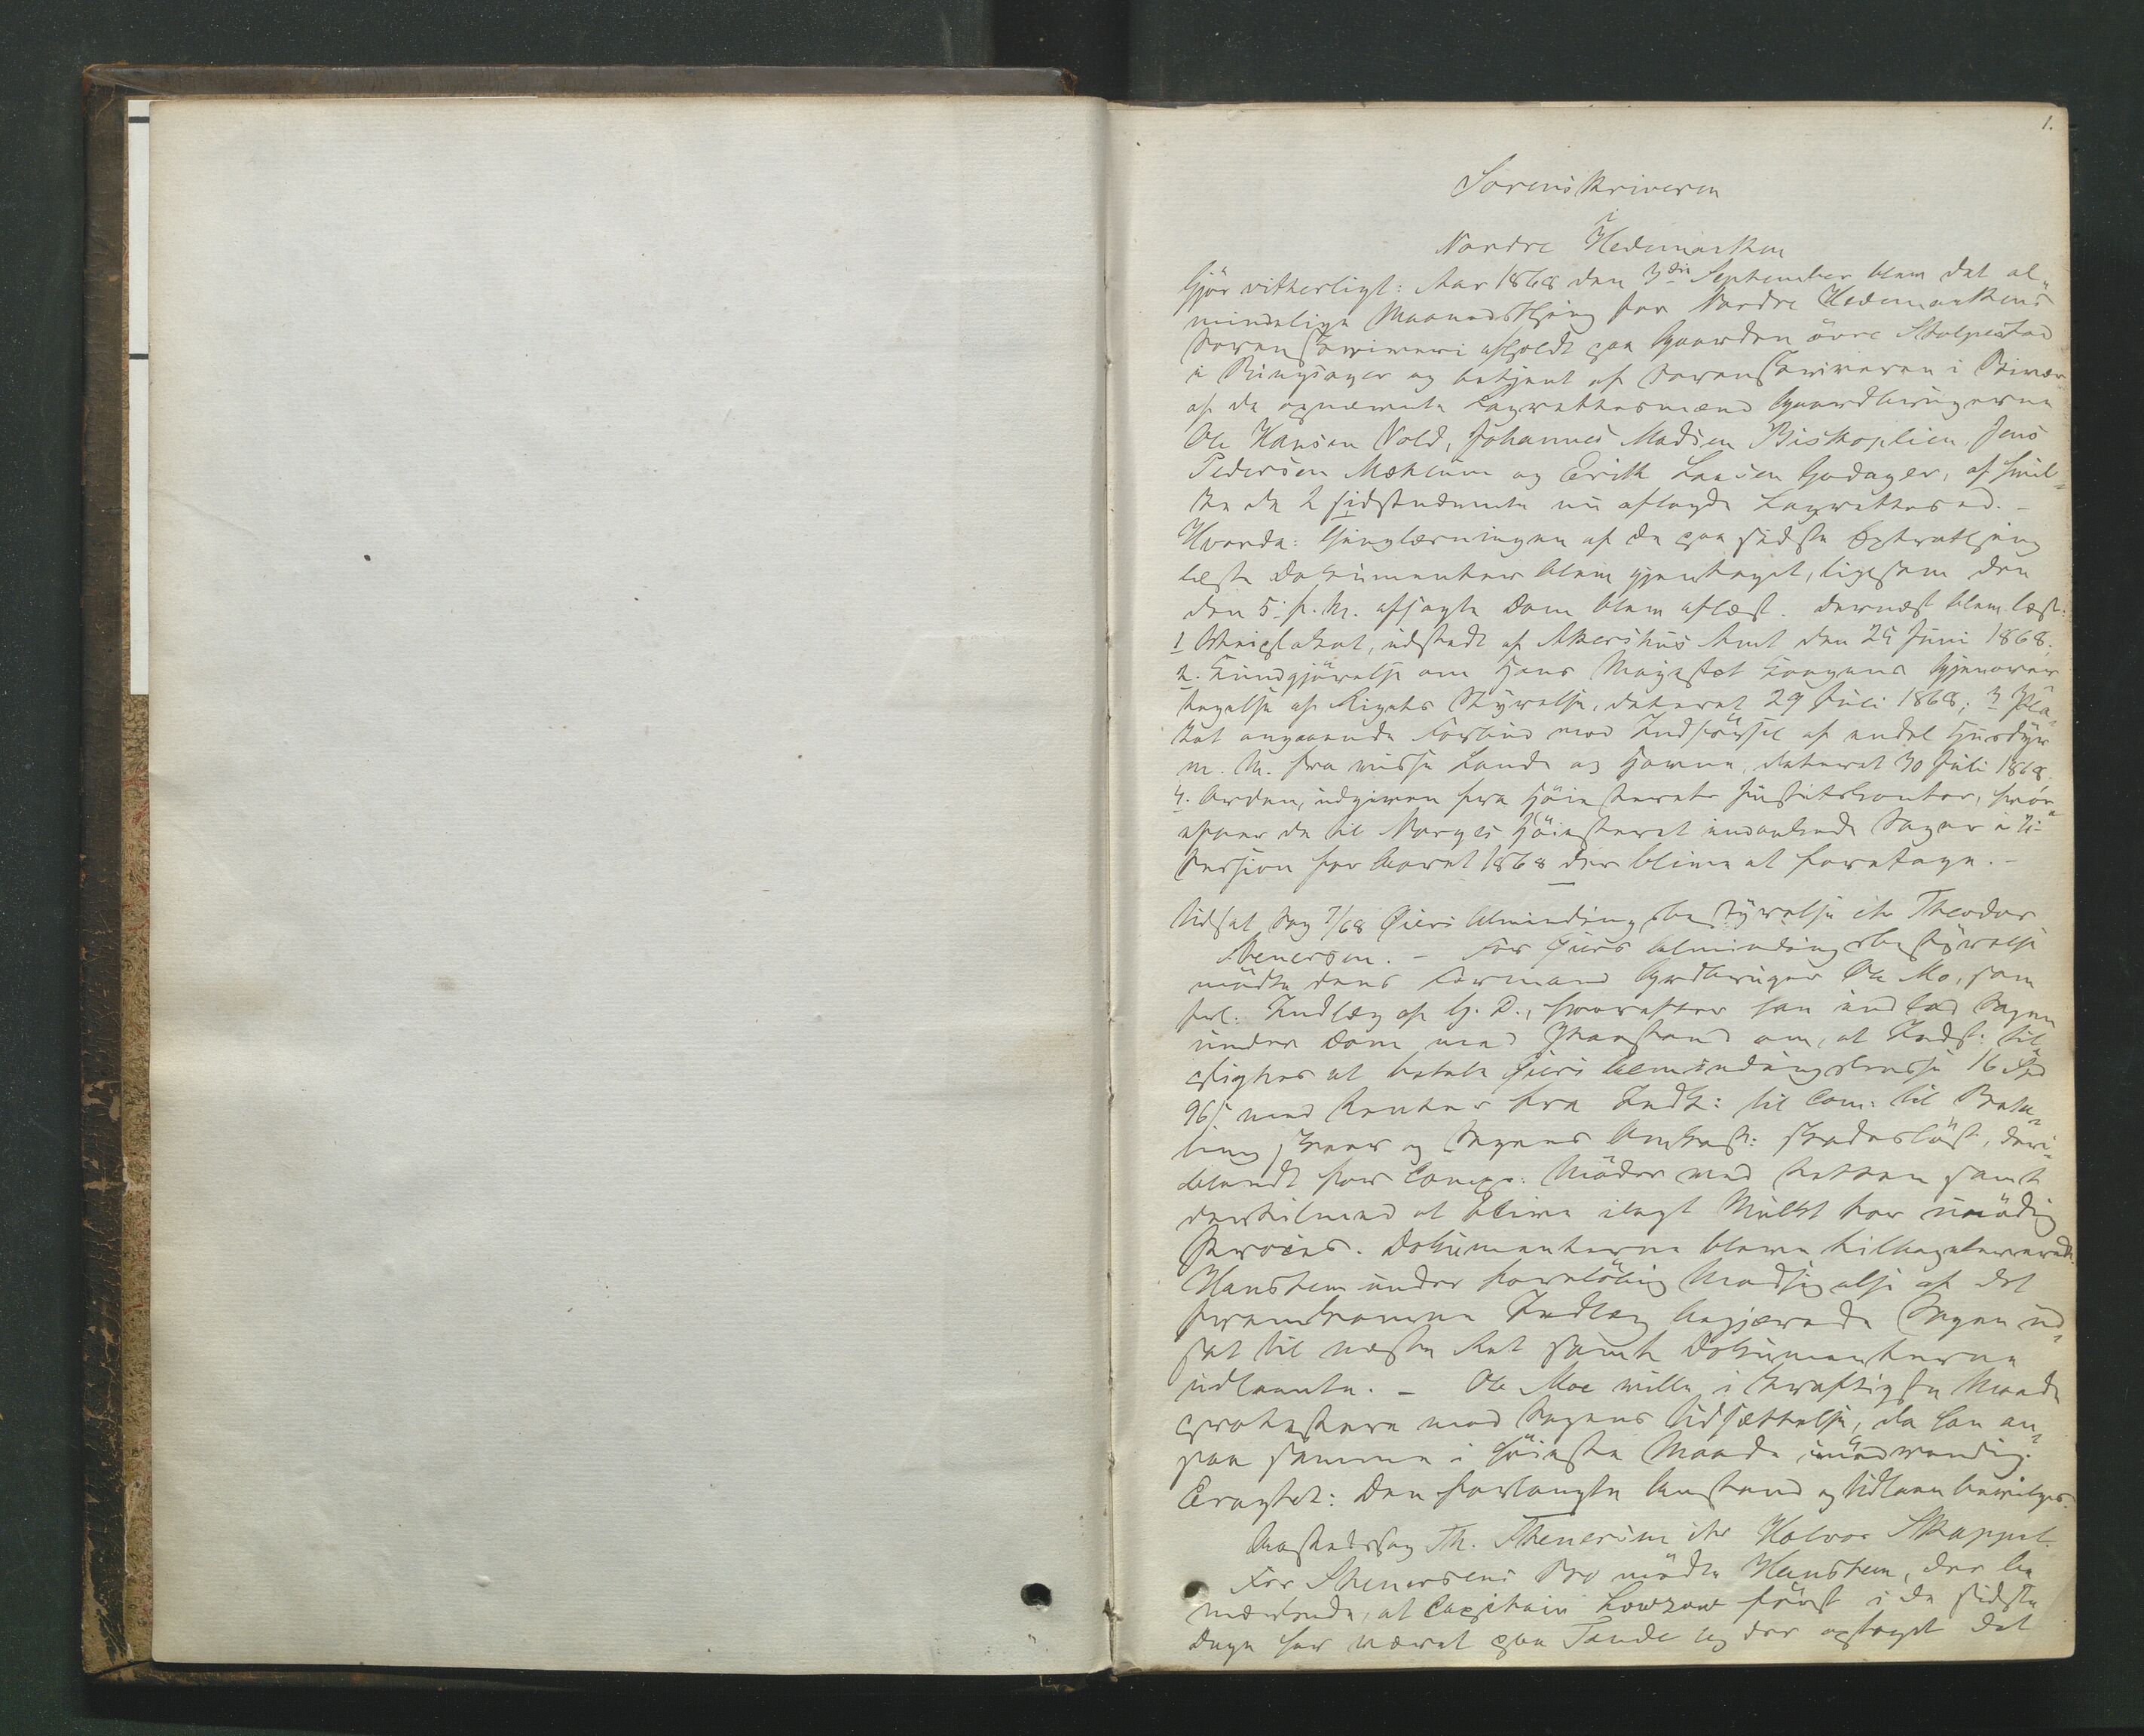 1.
Sorenskriveren
i
Nordre Hedemarken
Gjør vitherligt: Aar 1868 den 3die September blev det al-
mindelige Maanedsthing for Nordre Hedemarkens
Sorenskriveri afholdt paa Gaarden övre Stolpestad
i Ringsager og betjent af Sorenskriveren i Bivær
af de opnævnte Lagrettesmænd Gaardbrugerne
Ole Hansen Vold, Johannes Madsen Biskoplien, Jens
Pedersen Mæhlum og Erik Larsen Godager, af hvil-
ke de 2 sidstnævnte nu aflagde Lagrettesed. -
Hvorda: Thinglæsningen af de paa sidste Extrathing
læste Dokumenter blev gjentaget, ligesom den
den 5. f. M. afsagte Dom blev aflæst. Dernæst blev læst:
1 Veiplakat, udstedt af Akershus Amt den 24 Juni 1868;
2. Kundgjørelse om Hans Majestæt Kongens Gjenover-
tagelse af Rigets Styrelse, dateret 29 Juli 1868; 3 Pla-
kat angaaende Forbud mod Indførsel af endel Huusdyr
m. M. fra visse Lande og Havne, dateret 30 Juli 1868.
4. Orden, udgiven fra Høiesterets Justitskontor, hvor-
efter de til Norges Høiesteret indankede Sager i 2.
Session for Aaret 1868 der blive at foretage. -
Udsat Sag 7/68 Øiers Almindingsbestyrelse ctr Theodor
Stenersen. - For Øiers Almindingsbestyrelse
mødte dens Formand Grdbruger Ole Mo, som
frl. Indlæg af G. D., hvorefter han indlod Sagen
under Dom med Paastand om, at Indst: til
pligtes at betale Øiers Almindingskasse 16 Spd
96 s med Renter fra Indk: til Com: til Beta-
ling skeer og Sagens Omkost: skadesløst, deri-
blandt for Comp: Møder ved Retten samt
dertilmed at blive ilagt Mulkt for unødig
Proces. Dokumenterne bleve tilbageleverede.
Hanstein under foreløbig Modsigelse af det
fremkomne Indlæg begjærede Sagen ud-
sat til næste Ret samt Dokumenterne
udlaante. - Ole Moe vilde i kraftigste Maade
protestere mod Sagens Udsættelse, da han an-
saa samme i høieste Maade unødvendig.
Eragtet: Den forlangte Anstand og Udlaan bevilges.
Gjæstedssag Th. Stenersen ctr Halvor Skappel.
For Stenersens Bro mødte Hanstein, der be
mærkede, at Capitain Lowzow først i de sidste
Dage har været paa Tande og der optaget det